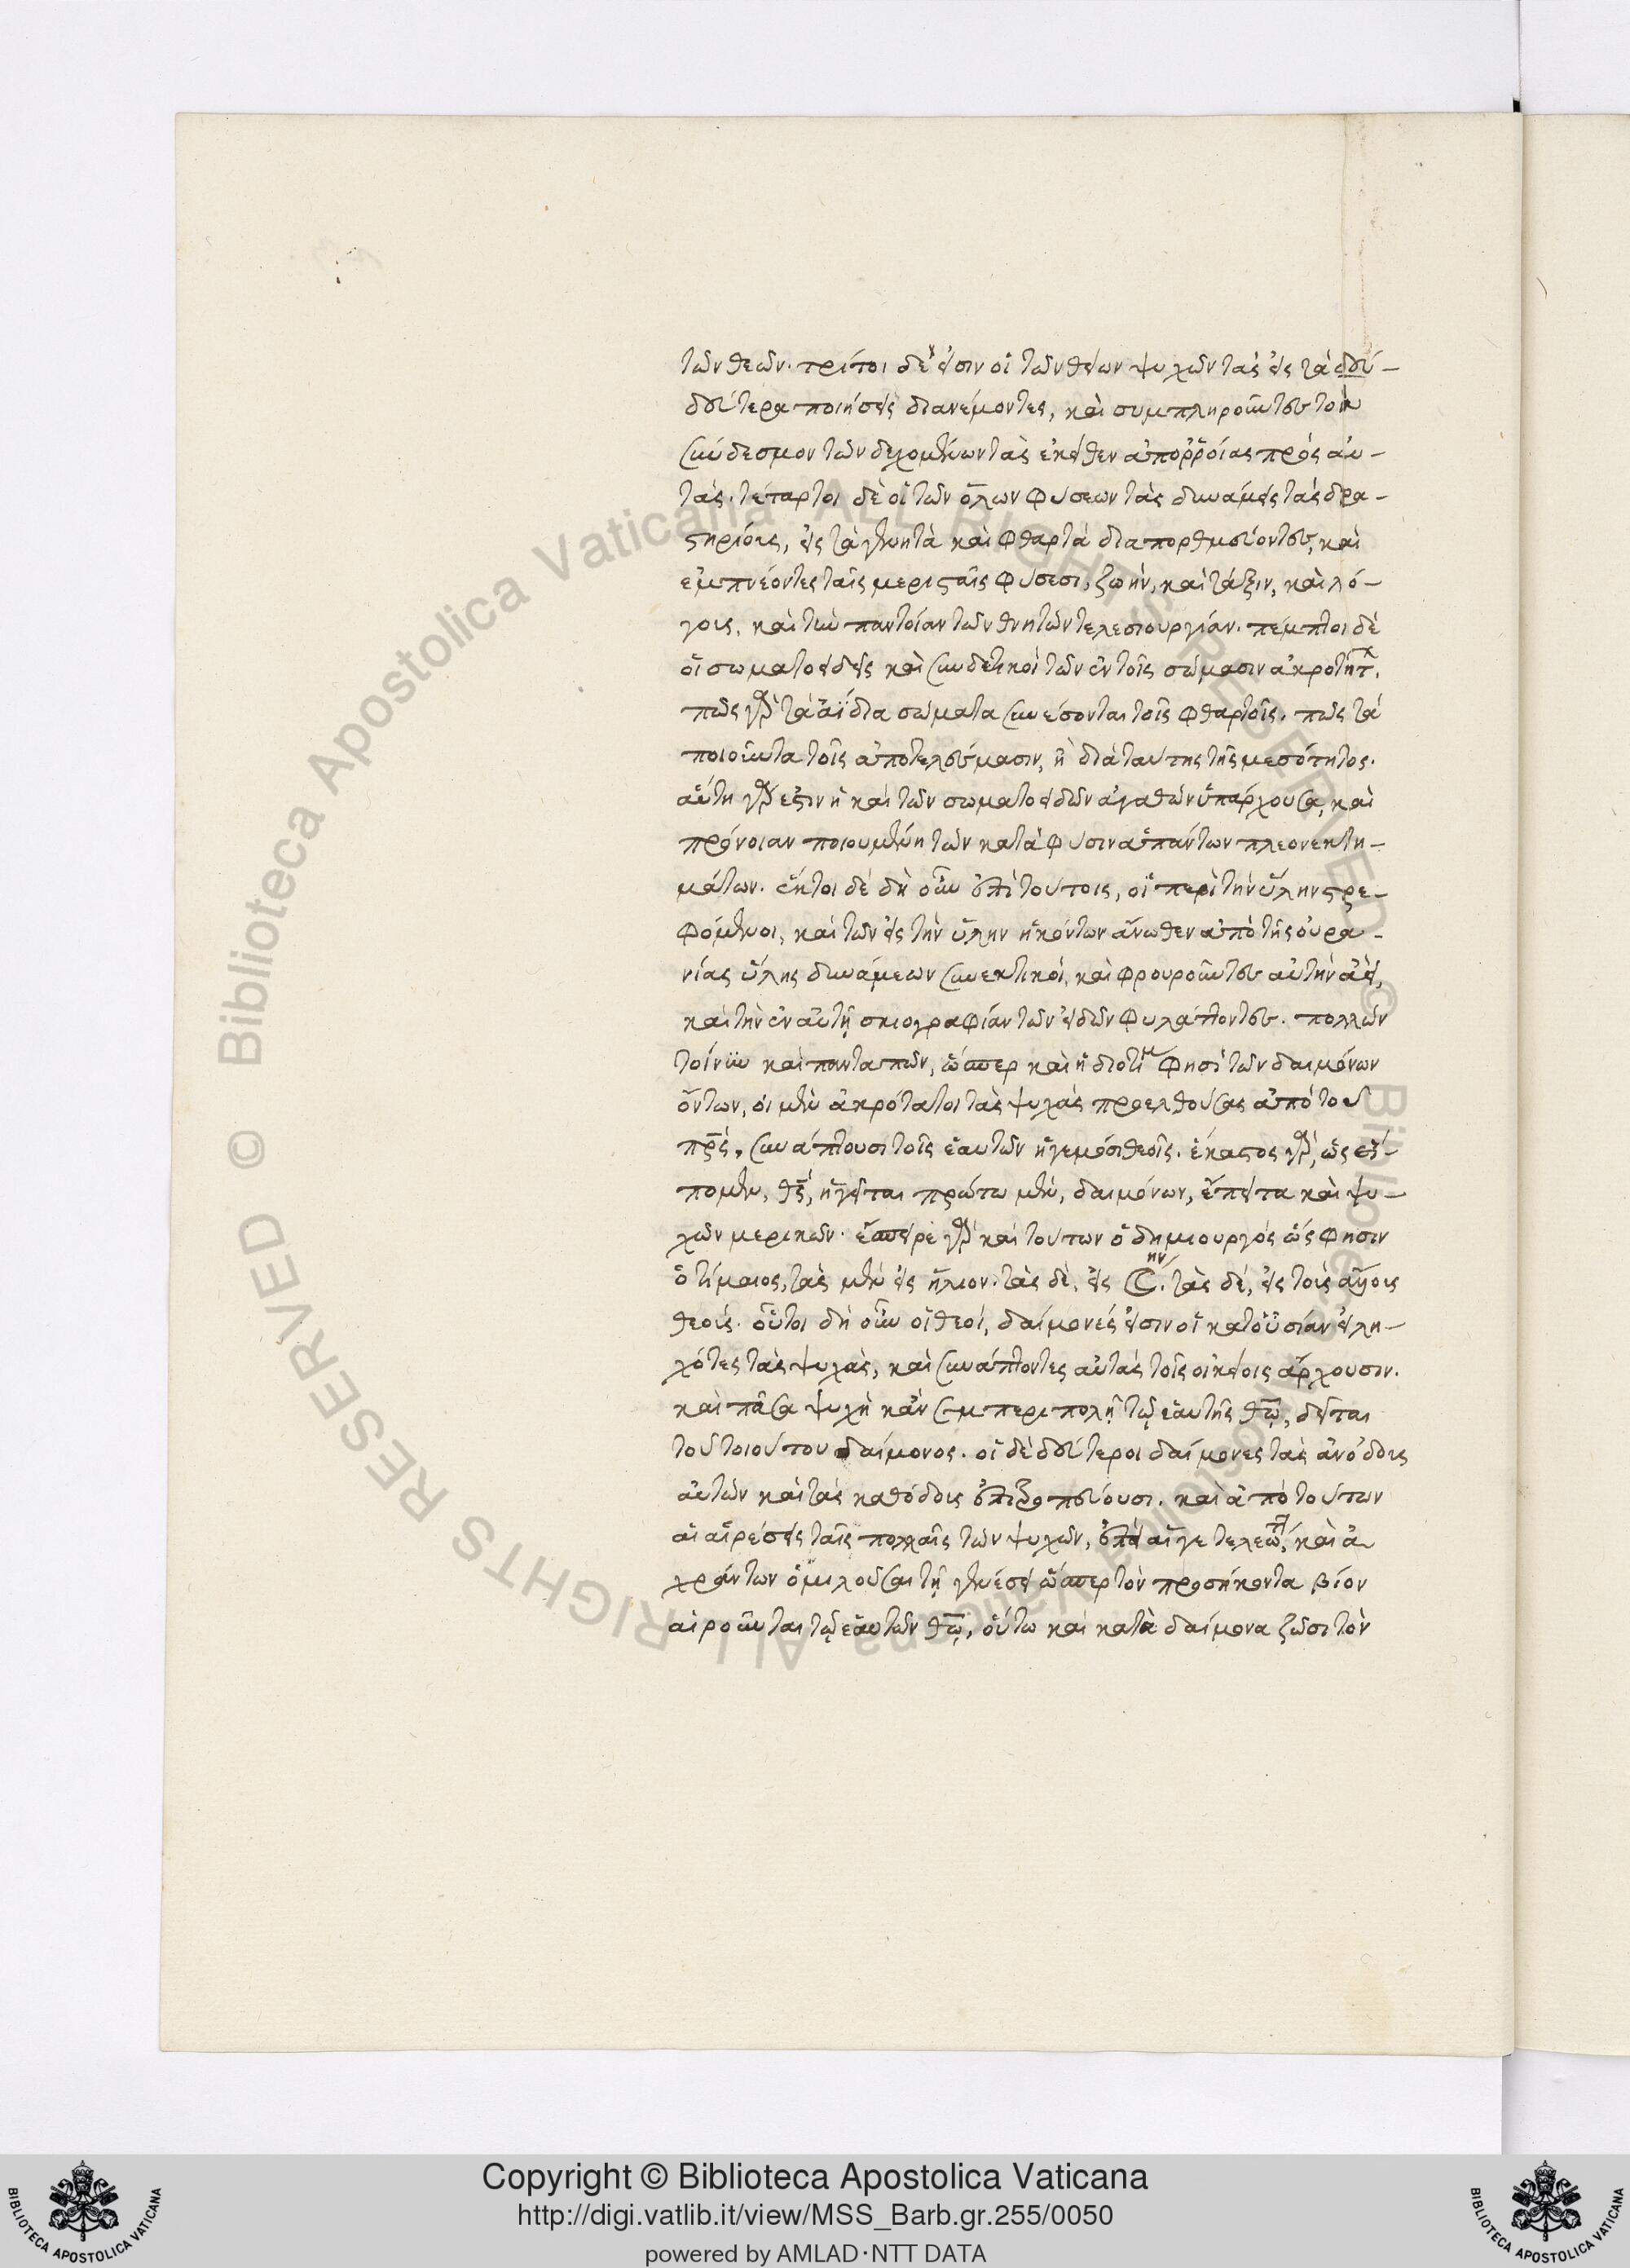 τῶν θεῶν. τρίτοι δέ εἰσιν οἱ τῶν θείων ψυχῶν τὰς εἰς τὰ δεύ-
δεύτερα ποιήσεις διανέμοντες, καὶ συμπληροῦντες τὸν
σύνδεσμον τῶν δεχομένων τὰς ἐκεῖθεν ἀπορροίας πρὸς αὐ-
τάς. τέταρτοι δὲ οἱ τῶν ὅλων φύσεων τὰς δυνάμεις τὰς δρα-
στηρίους, εἰς τὰ γεννητὰ καὶ φθαρτὰ διαπορθμεύοντες, καὶ
ἐμπνέοντες ταῖς μερισταῖς φύσεσι, ζωὴν, καὶ τάξιν, καὶ λό-
γους, καὶ τὴν παντοίαν τῶν θνητῶν τελεσιουργίαν. πέμπτοι δὲ
οἱ σωματοειδεῖς καὶ συνδετικοὶ τῶν ἐν τοῖς σώμασιν ἀκροτήτ.
πῶς γὰρ τὰ ἀΐδια σώματα συνέσονται τοῖς φθαρτοῖς. πῶς τὰ
ποιοῦντα τοῖς ἀποτελεύμασιν, ἢ διὰ ταύτης τῆς μεσότητος.
αὕτη γάρ ἐστιν ἡ καὶ τῶν σωματοειδῶν ἀγαθῶν ὑπάρχουσα, καὶ
πρόνοιαν ποιουμένη τῶν κατὰ φύσιν ἁπάντων πλεονεκτη-
μάτων. ἕκτοι δὲ δὴ οὖν ἐπὶ τούτοις, οἱ περὶ τὴν ὕλην στρε-
φόμενοι, καὶ τῶν εἰς τὴν ὕλην ἡκόντων ἄνωθεν ἀπὸ τῆς οὐρα-
νίας ὕλης δυνάμεων συνεκτικοί, καὶ φρουροῦντες αὐτὴν ἀεί,
καὶ τὴν ἐν αὐτῇ σκιογραφίαν τῶν εἰδῶν φυλάττοντες. πολλῶν
τοίνυν καὶ πανταπῶν, ὥσπερ καὶ ἡ διοτίμ φησὶ τῶν δαιμόνων
ὄντων, οἱ μὲν ἀκρότατοι τὰς ψυχὰς προελθούσας ἀπὸ τοῦ
πρς, συνάπτουσι τοῖς ἑαυτῶν ἡγεμόσι θεοῖς. ἕκαστος γάρ, ὡς εἴ-
πομεν, θς, ἡγεῖται πρώτω μὲν, δαιμόνων, ἔπειτα καὶ ψυ-
χῶν μερικῶν. ἔσπειρε γὰρ καὶ τούτων ὁ δημιουργός ὥς φησιν
ὁ τίμαιος, τὰς μὲν εἰς ἥλιον. τὰς δὲ, εἰς ☾ην. τὰς δέ, εἰς τοὺς ἄλλους
θεούς. οὗτοι δὴ οὖν οἱ θεοί, δαίμονές εἰσιν οἱ κατ οὐσίαν εἰλη-
χότες τὰς ψυχὰς, καὶ συνάπτοντες αὐτὰς τοῖς οἰκείοις ἄρχουσιν.
καὶ πᾶσα ψυχὴ κἂν συμπεριπολῇ τῷ ἑαυτῆς θῷ, δεῖται
τοῦ τοιούτου δαίμονος. οἱ δὲ δεύτεροι δαίμονες τὰς ἀνόδους
αὐτῶν καὶ τὰς καθόδους ἐπιτροπεύουσι. καὶ ἀπὸ τούτων
αἱ αἱρέσεις ταῖς πολλαῖς τῶν ψυχῶν, ἐπεὶ αἵγε τελεώτ, καὶ ἀ
χράντων ὁμιλοῦσαι τῇ γενέσει ὥσπερ τὸν προσήκοντα βίον
αἱροῦνται τῷ ἑαυτῶν θῷ, οὕτω καὶ κατὰ δαίμονα ζῶσι τὸν
Copyright © Biblioteca Apostolica Vaticana
http://digi.vatlib.it/view/MSS_Barb.gr.255/0050
powered by AMLAD·NTT DATA
BIBLIOTECA APOSTOLICA VATICANA
BIBLIOTECA APOSTOLICA VATICANA
© Biblioteca Apostolica Vaticana ALL RIGHTS RESERVED
© Biblioteca Apostolica Vaticana ALL RIGHTS RESERVED